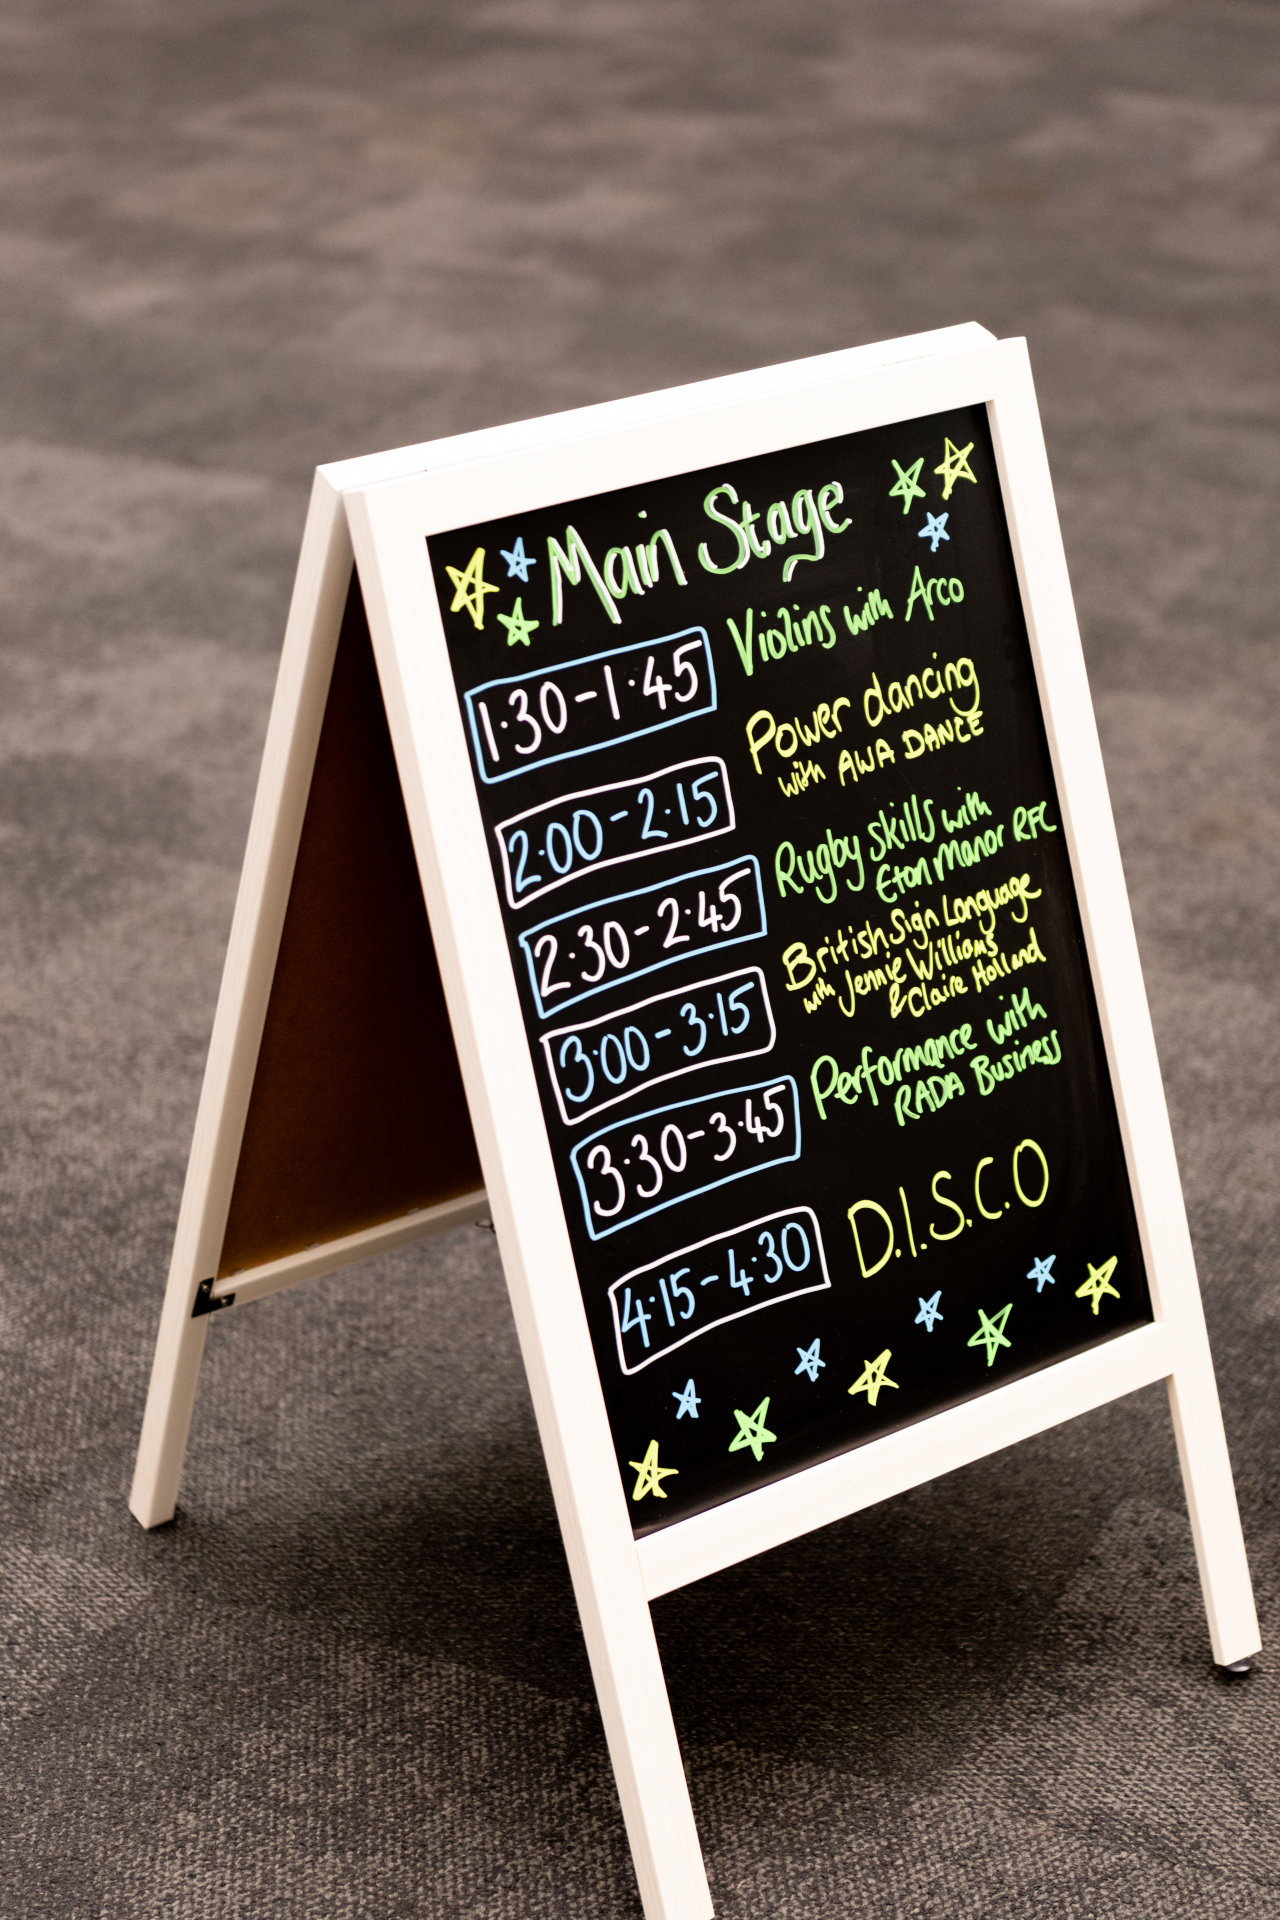 Main Stage
1·30-1·45 Violins with Arco
2·00-2·15 Power dancing
with AWA DANCE
2·30-2·45 Rugby skills with
Eton Manor RFC
3·00-3·15 British Sign Language
with Jennie Williams
& Claire Holland
3·30-3·45 Performance with
RADA Business
4·15-4·30 D.I.S.C.O